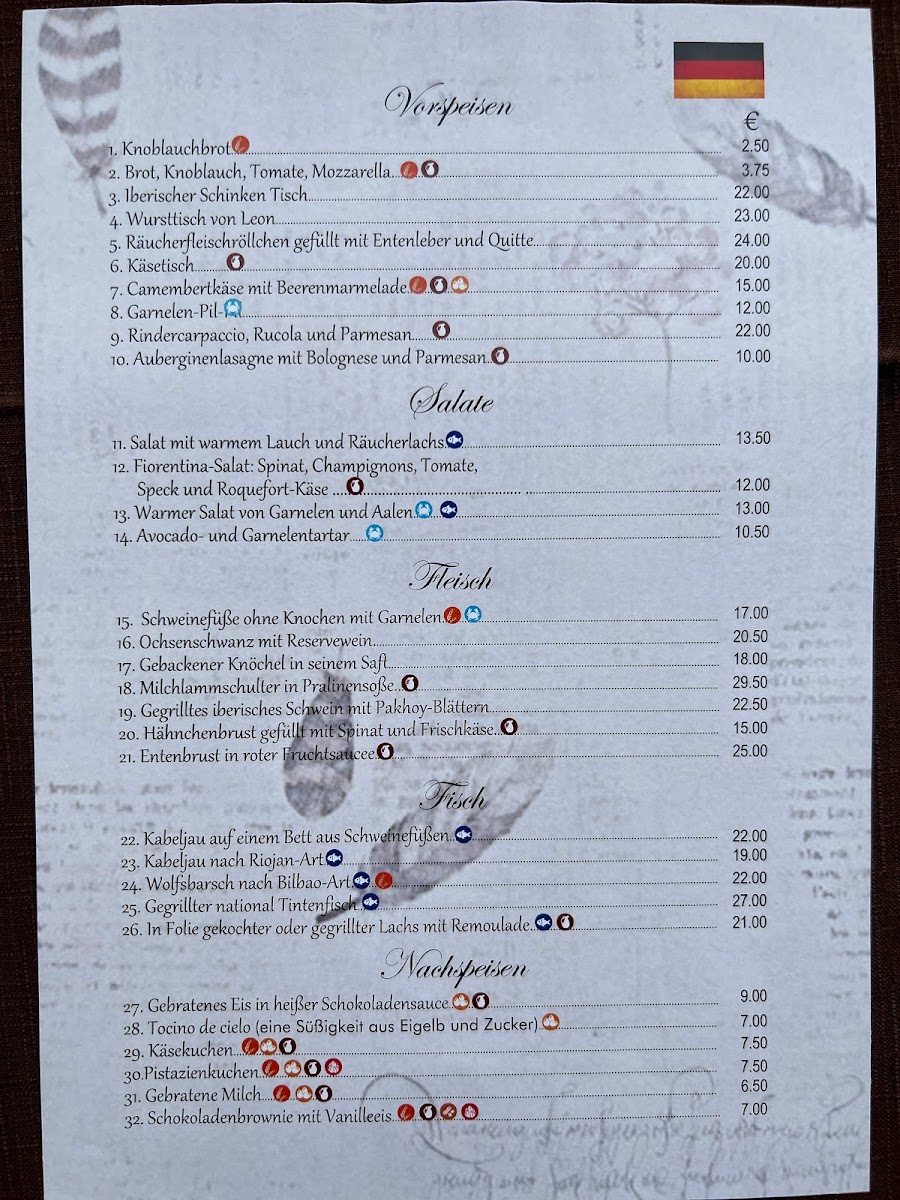 Vorspeisen
€
1. Knoblauchbrot 2.50
2. Brot, Knoblauch, Tomate, Mozzarella 3.75
3. Iberischer Schinken Tisch 22.00
4. Wursttisch von Leon 23.00
5. Räucherfleischröllchen gefüllt mit Entenleber und Quitte 24.00
6. Käsetisch 20.00
7. Camembertkäse mit Beerenmarmelade 15.00
8. Garnelen-Pil- 12.00
9. Rindercarpaccio, Rucola und Parmesan 22.00
10. Auberginenlasagne mit Bolognese und Parmesan 10.00
Salate
11. Salat mit warmem Lauch und Räucherlachs 13.50
12. Fiorentina-Salat: Spinat, Champignons, Tomate,
Speck und Roquefort-Käse 12.00
13. Warmer Salat von Garnelen und Aalen 13.00
14. Avocado- und Garnelentartar 10.50
Fleisch
15. Schweinefüße ohne Knochen mit Garnelen 17.00
16. Ochsenschwanz mit Reservewein 20.50
17. Gebackener Knöchel in seinem Saft 18.00
18. Milchlammschulter in Pralinensoße 29.50
19. Gegrilltes iberisches Schwein mit Pakhoy-Blättern 22.50
20. Hähnchenbrust gefüllt mit Spinat und Frischkäse 15.00
21. Entenbrust in roter Fruchtsaucee 25.00
Fisch
22. Kabeljau auf einem Bett aus Schweinefüßen 22.00
23. Kabeljau nach Riojan-Art 19.00
24. Wolfsbarsch nach Bilbao-Art 22.00
25. Gegrillter national Tintenfisch 27.00
26. In Folie gekochter oder gegrillter Lachs mit Remoulade 21.00
Nachspeisen
27. Gebratenes Eis in heißer Schokoladensauce 9.00
28. Tocino de cielo (eine Süßigkeit aus Eigelb und Zucker) 7.00
29. Käsekuchen 7.50
30.Pistazienkuchen 7.50
31. Gebratene Milch 6.50
32. Schokoladenbrownie mit Vanilleeis 7.00